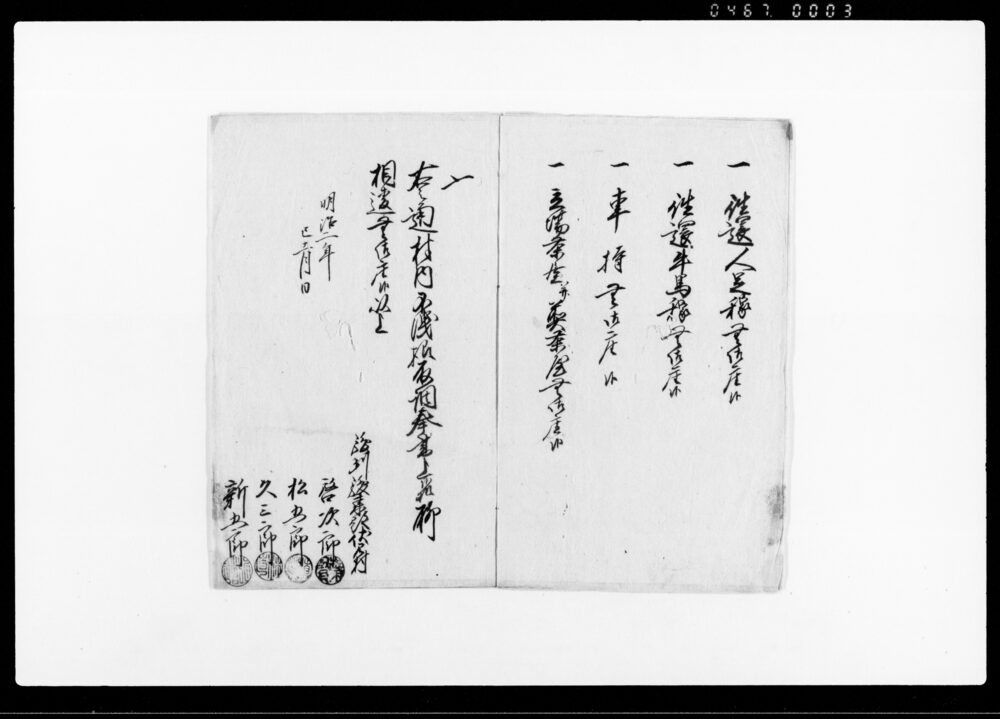 0467 0003
一 往還人足稼無御座候
一 往還牛馬稼無御座候
一 車持無御座候
一 立場茶屋并煎茶屋無御座候
〆
右之通村内不残相改調奉書上候処聊
相違無御座候以上
明治二年
巳三月日
啓次郎
松五郎
久三郎
新五郎